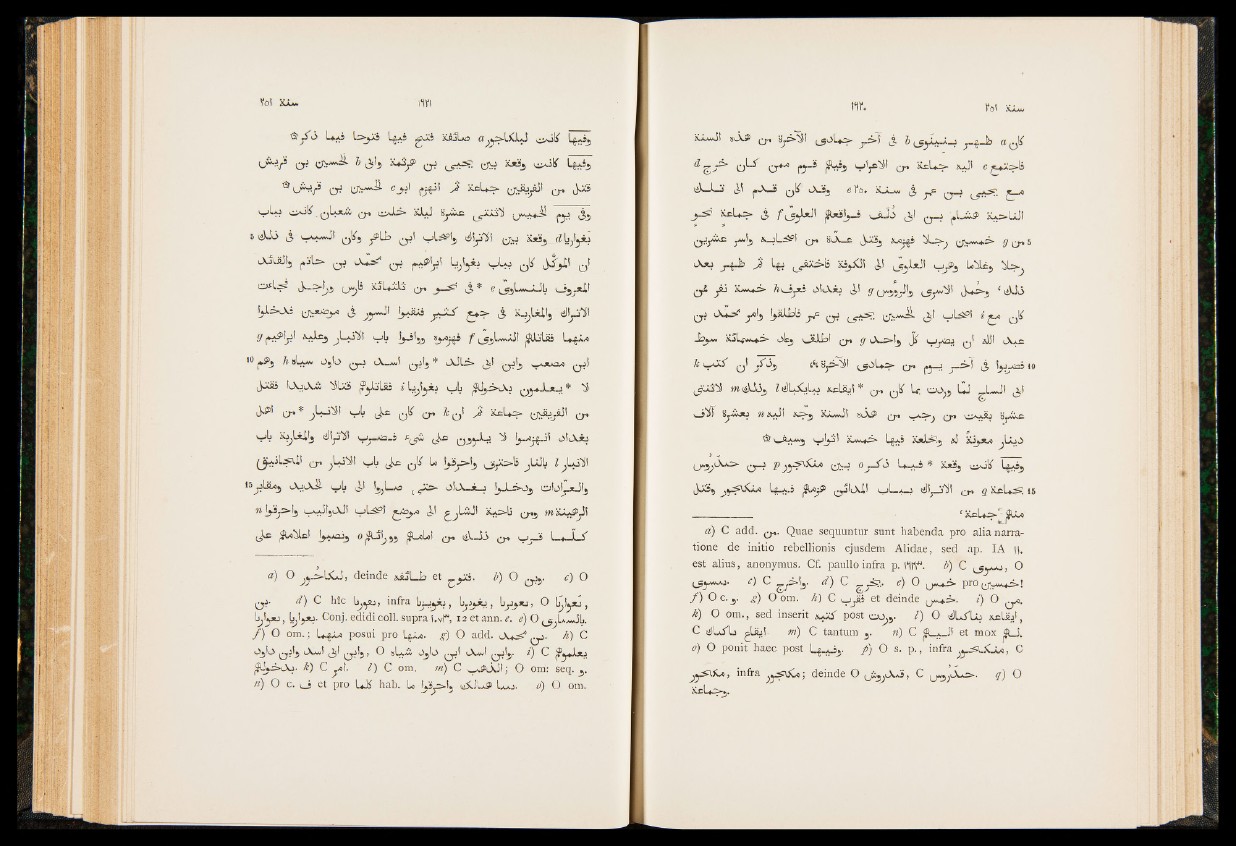 ١٦٢٠ سنة ٢٥١
كان a ظهر بنينوى b في آخر جمادى الآخرة من هذه السنة
فاجتمع c اليه جماعة من الاعراب وفيهم قوم ممن كان خرج d
مع يحيى بن عمر في سنة ٢٥٠ e وقد كان قدم الى تلك
الناحية هشام بن ابى دلف فواقعهم العلوى f في جماعة نحو
5 من g خمسين رجلا فهزمه وقتل عدّة من اصحابه واسر عشرين
رجلا وغلاما وهرب العلوى الى الكوفة فاختفى بها ثم ظهر بعد
ذلك، وحمل الاسرى والرؤوس g الى بغداد فعرف h خمسة نفر ممن
كان مع i اصحاب ابى الحسين يحيى بن عمر فاطلقوا وامر محمّد بن
عبد الله ان يضرب كل واحد g من اطلق وعاد خمسمائة سوط
10 فضربوا في آخر يوم من جمادى الآخرة وذُكر ان كتب k
ابى الساج لمّا وردت بما كان من * ايقاعه ببايكباك l وذلك m لاثنتى
عشرة بقيت من رجب من هذه السنة وجّه اليه n بعشرة آلاف
دينار معونةً له وبخلعة فيها خمسة اثواب وسيف
وفيها كانت وقعة * فيما ذكر o بين منكجور p بن حيدروس
15 بجماعة q من الاتراك بباب المدائن هزمهم فيها منكجور وقتل
منهم جماعة،
a) C add. من. Quae sequuntur sunt habenda pro alia narra-
tione de initio rebellionis ejusdem Alidae, sed ap. IA
est alius, anonymus. Cf. paullo infra p. ١٦٢٣. b) C , O
c) C واخرج. d) C يخرج. e) O خمس pro خمسين!
f) O c. و. g) O om. h) C فقرب et deinde خمس. i) O من.
k) O om., sed inserit كتبه post وردت. l) O
C m) C tantum و. n) C اليهم et mox لهم.
o) O ponit haec post وفيها. p) O s. p., infra , C
, infra ; deinde O , C حيدروس. q) O
وجماعة.
١٦٢١ سنة ٢٥١
وفيها كانت لبلكاجور a صائفة فتح فيها فتوحا فيما ذكر
وفيها كانت وقعة بين يحيى بن هرثمة وابى b الحسين بن قريش
قتل من الفريقين جماعة ثم انهزم ابو c الحسين بن قريش
وفى يوم الخميس لاثنتى عشرة ليلة خلت من شعبان كانت بباب
5 بغواريا d وقعة بين الاتراك واصحاب ابن طاهر وكان السبب في ذلك
ان الموكّل كان بباب بغواريا ابراهيم بن محمّد بن حاتم والقائد
المعروف بالنساوى e * في نحو من ثلثمائة فارس وراجل فجاءت
الاتراك والمغاربة في جمع كثير فنقبوا السور في موضعين فدخلوا
منهما فقاتلهم النساوى f فهزموه ووافوا باب الانبار وعليه ابراهيم g
10 ابن مصعب وابن ابى خالد * وابن اسد بن داود سياه h وهم
لا * يعلمون بدخولهم باب بغواريا i فقاتلهم قتالا شديدا فقتل
من الفريقين جماعة ثم ان k من كان على باب الانبار * من اهل
بغداد انهزموا لا يلوون على شىء فضرب الاتراك والمغاربة باب
الانبار l بالنار فاحترق واحرقوا ما كان على باب الانبار من المجانيق
15 والعرادات ودخلوا بغداد حتى صاروا الى باب الحديد ومقابر
الرهينة m ومن ناحية الشارع الى موضع اصحاب الدواليب واحرقوا n
كلما قرب من ذلك من امامهم وورائهم o ونصبوا اعلامهم على
a) O , deinde طائفة et فتوح. b) O وبن. c) O
بن. d) C hic , infra , , , O ,
, . Conj. edidi coll. supra , 12 et ann. c. e) O
f) O om.; منهما posui pro منها. g) O add. بن محمد. h) C
وابن ابى اسد وابن داود, O وابن اسد ابن داود سياه. i) C
بدخولهم. k) C امر. l) C om. m) C الذهب; O om. seq. و.
n) O c. ف et pro كلما hab. o) O om.